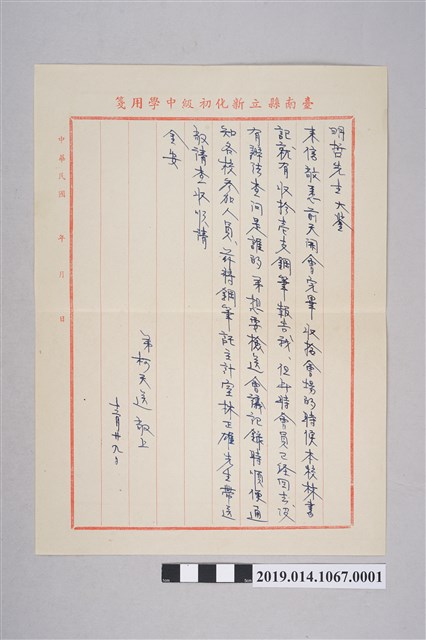 臺南縣立新化初級中學用箋
明哲先生大鑒
來信敬悉前天開會完畢收拾會場的時候本校林書
記就有收拾壱支鋼筆報告我、但斗時會員已經回去沒
有辦法查问是誰的弟想要檢送會議記錄時順便通
知各校参加人員、茲將鋼筆託主計室林正雄先生帶送
敬請查收順請
全安
弟柯天送敬上
十二月廿九日
中華民國 年 月 日
2019.014.1067.0001